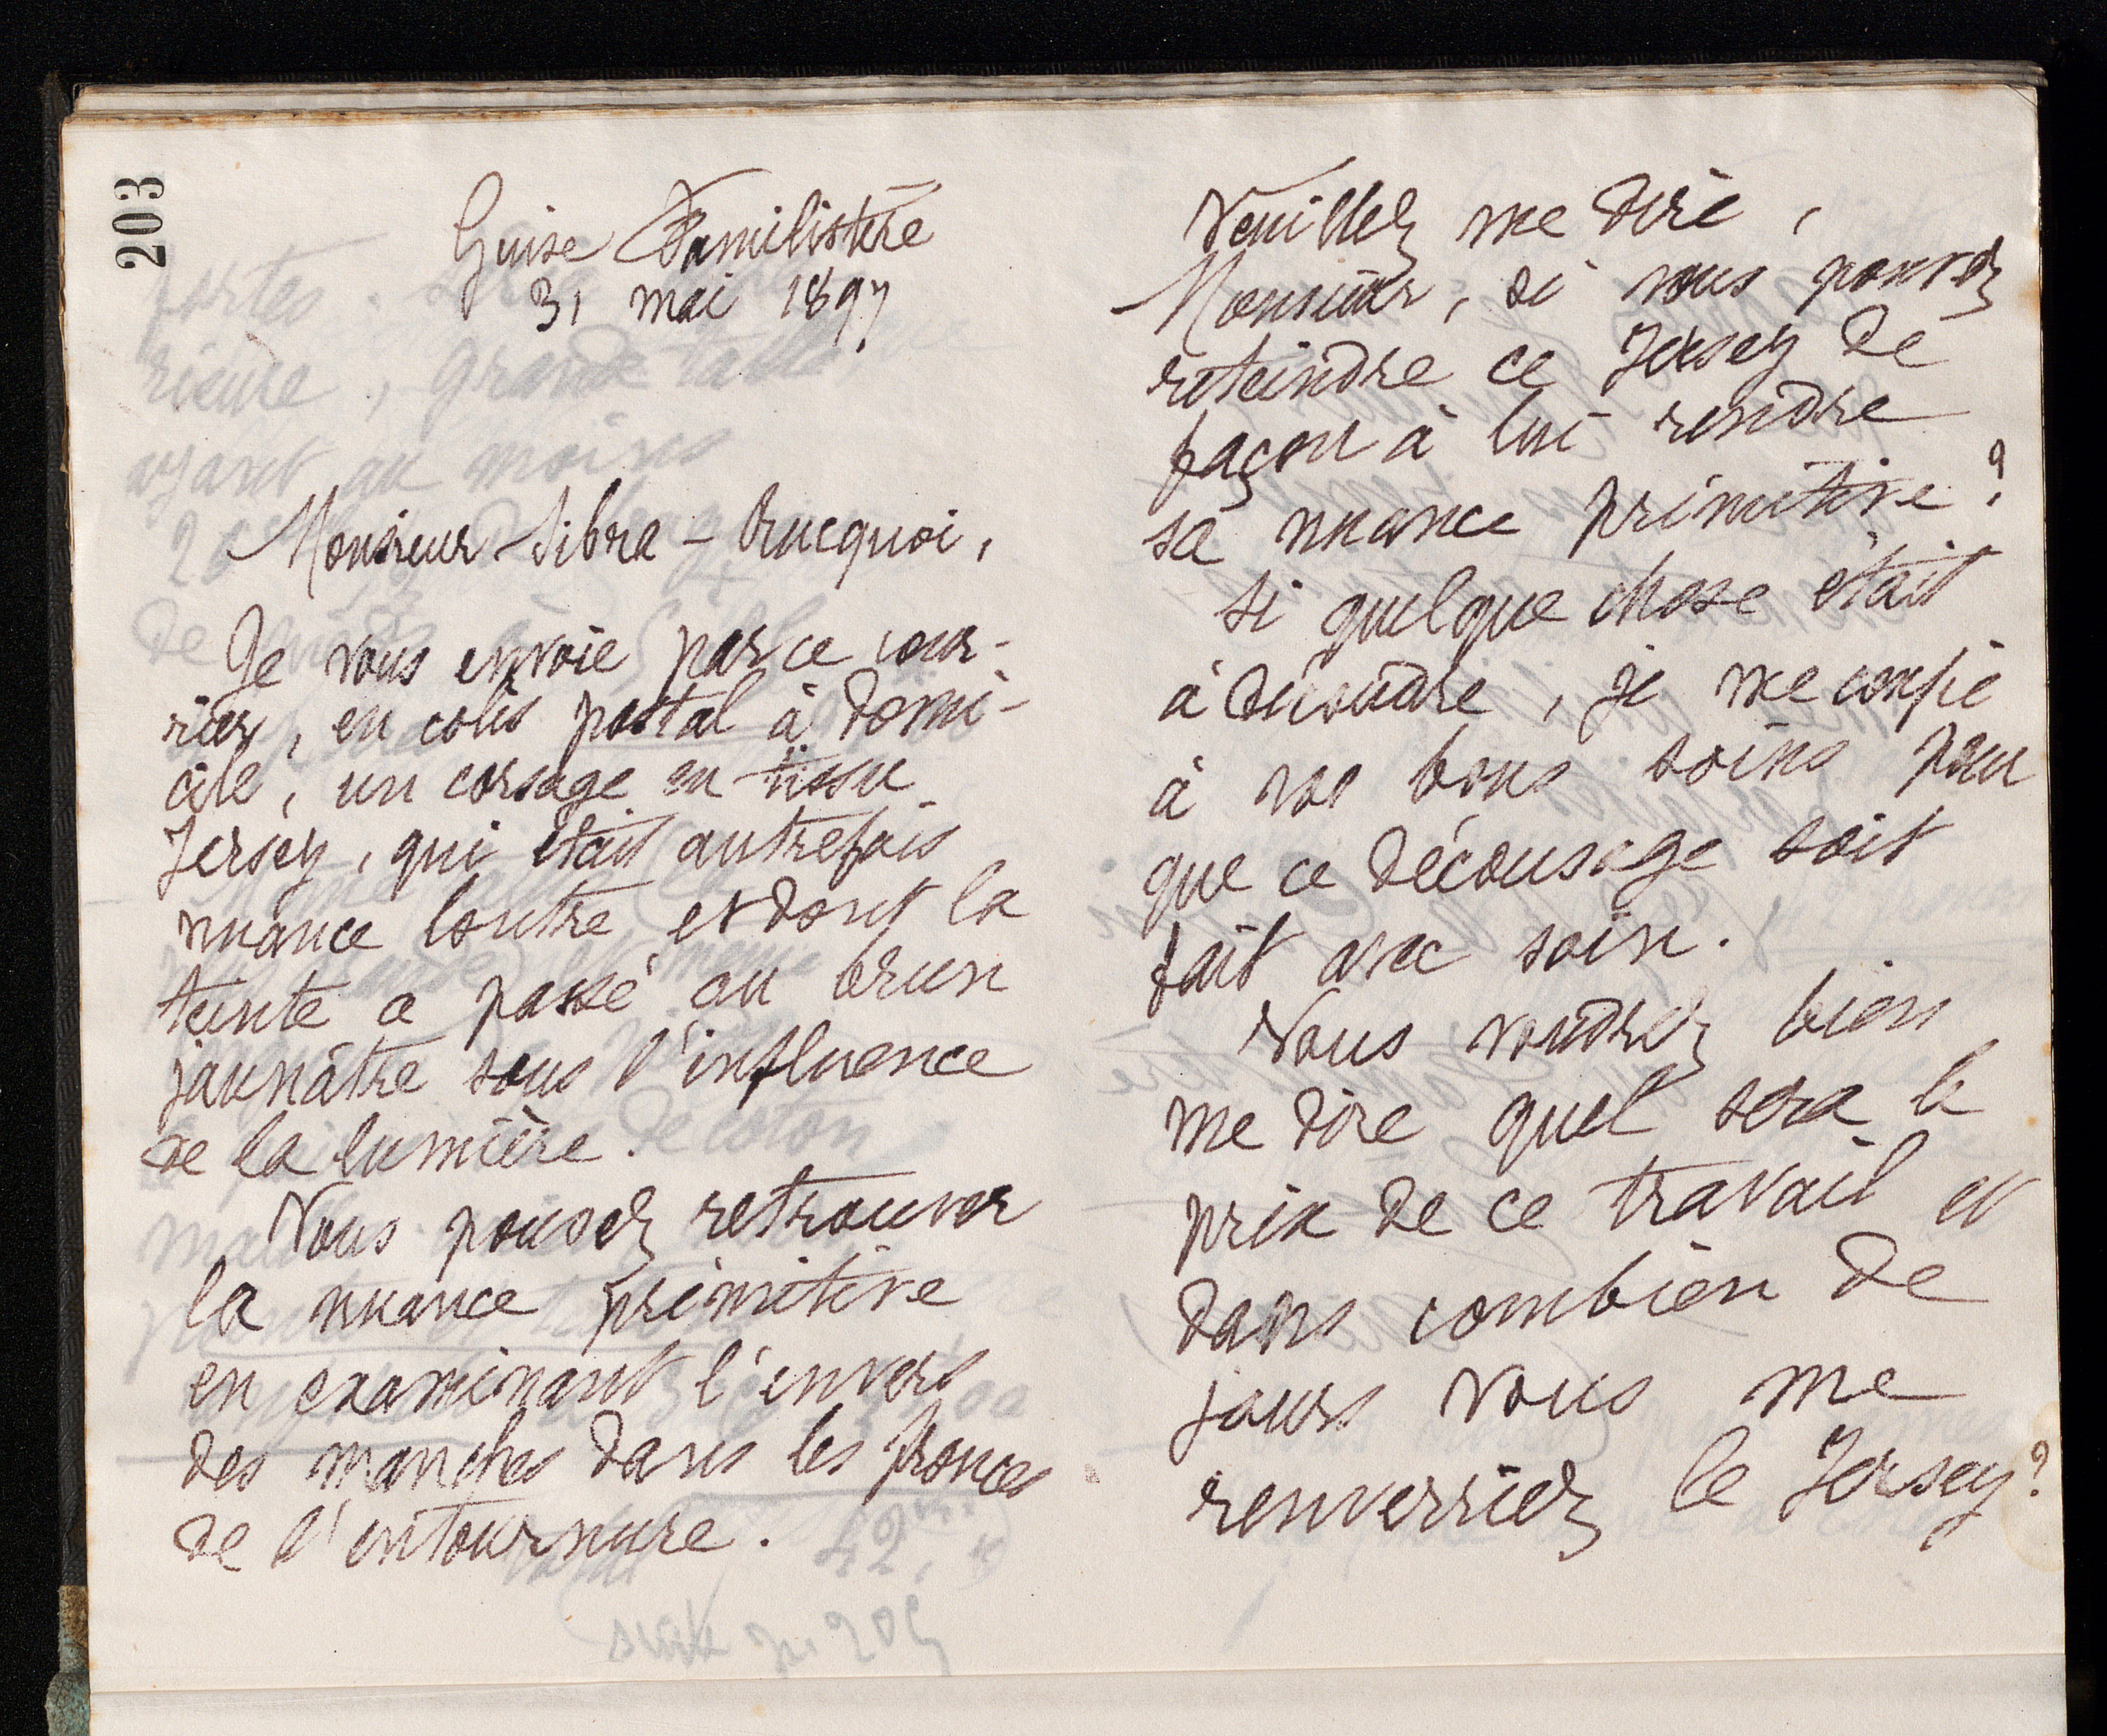 203
Guise Familistère
31 mai 1897
Monsieur Sibra-Bucquoi,
Je vous envoie par ce cour-
rier, en colis postal à domi-
cile, un corsage en tissu
Jersey, qui était autrefois
nuance loutre et dont la
teinte a passé au brun
jaunâtre sous l'influence
de la lumière.
Vous pouvez retrouver
la nuance primitive
en examinant l'envers
des manches dans les fronces
de l'entournure.
Veuillez me dire,
Monsieur, si vous pouvez
reteindre ce Jersey de
façon à lui rendre
sa nuance primitive ?
Si quelque chose était
à découdre, je me confie
à vos bons soins pour
que ce décousage soit
fait avec soin.
Vous voudrez bien
me dire quel sera le
prix de ce travail et
dans combien de
jours vous me
renverriez le Jersey ?